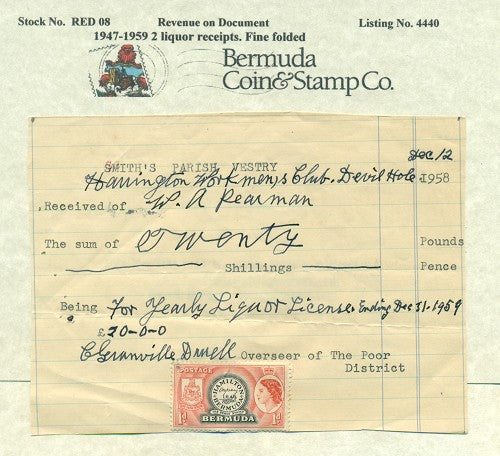 Stock No. RED 08 Revenue on Document Listing No. 4440
1947-1959 2 liquor receipts. Fine folded
Bermuda
Coin&Stamp Co.
Dec 12
SMITH'S PARISH VESTRY
Harrington Workmens Club. Devil Hole. 1958
Received of W. A Pearman
The sum of Twenty Pounds
Shillings Pence
Being For Yearly Liquor License. Ending Dec 31-1959
£20-0-0
Overseer of The Poor
District
POSTAGE
HAMILTON
BERMUDA
1d 1d
BERMUDA